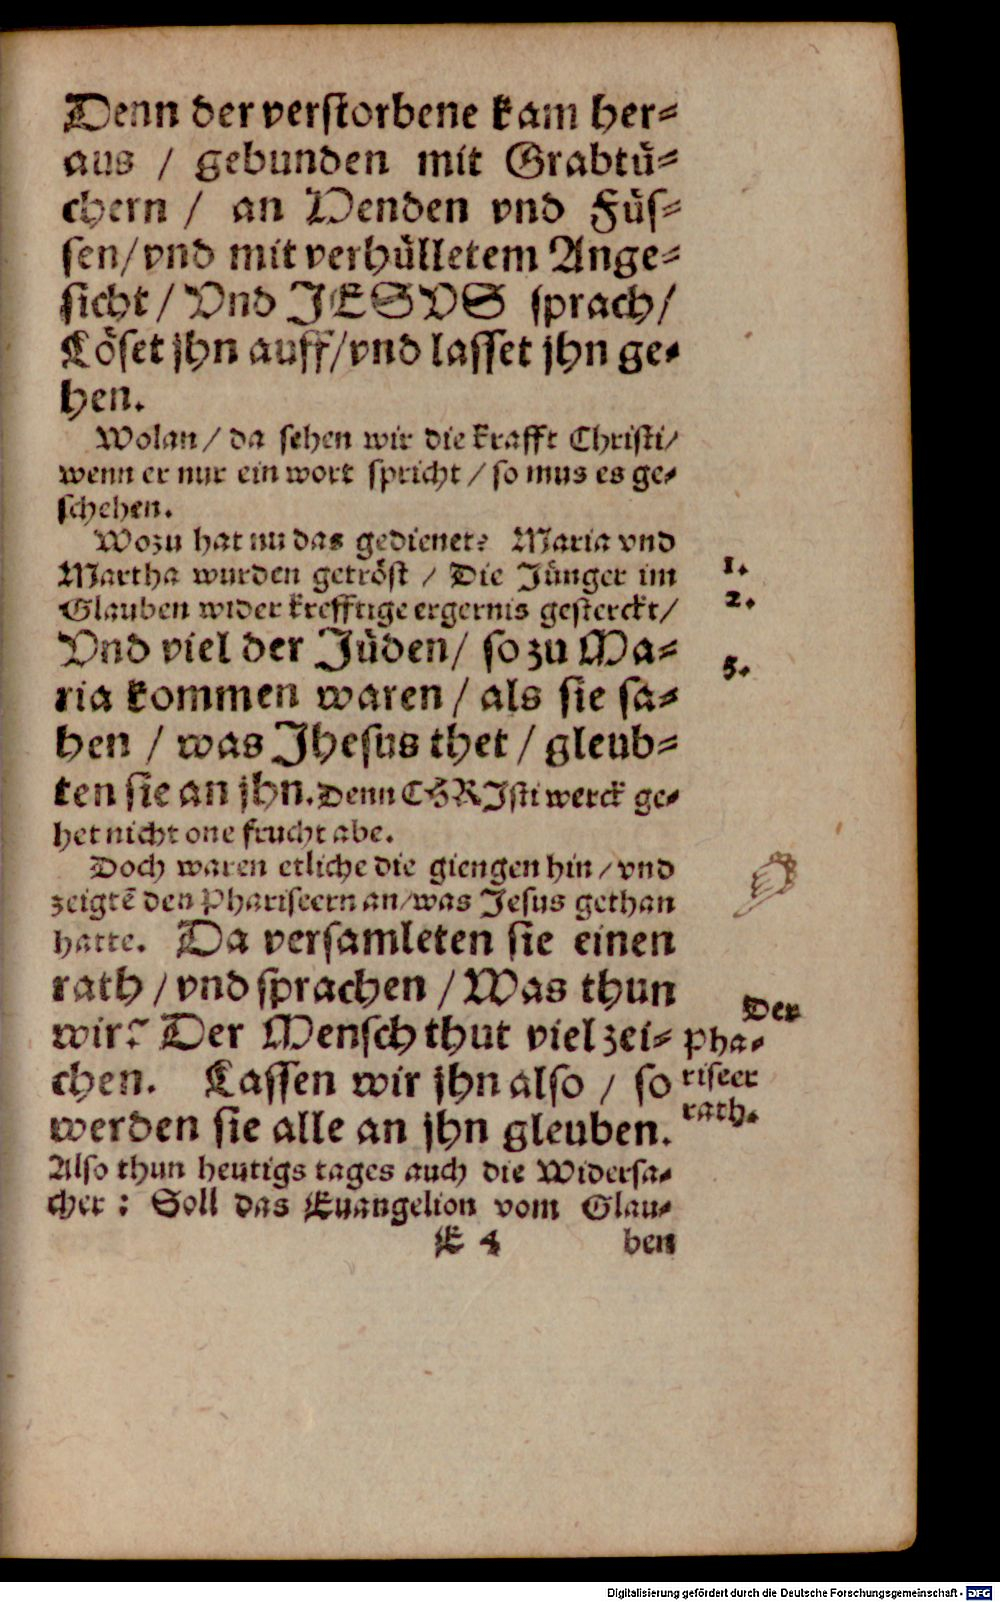 Denn der verstorbene kam her-
aus / gebunden mit Grabtü-
chern / an Henden vnd Füs-
sen/vnd mit verhülletem Ange-
sicht / Vnd JESVS sprach/
Löset jhn auff/vnd lasset jhn ge-
hen.
Wolan / da sehen wir die krafft Christi/
wenn er nur ein wort spricht / so mus es ge-
schehen.
Wozu hat nu das gedienet? Maria vnd
Martha wurden getröst / Die Jünger im
1.
Glauben wider krefftige ergernis gesterckt/
2.
Vnd viel der Jüden/ so zu Ma-
3.
ria kommen waren / als sie sa-
hen / was Jhesus thet / gleub-
ten sie an jhn. Denn CHRJsti werck ge-
het nicht one frucht abe.
Doch waren etliche die giengen hin / vnd
zeigtē den Phariseern an/was Jesus gethan
hatte. Da versamleten sie einen
rath / vnd sprachen / Was thun
wir? Der Mensch thut viel zei-
chen. Lassen wir jhn also / so
werden sie alle an jhn gleuben.
Der
Pha-
riseer
rath.
Also thun heutigs tages auch die Widersa-
cher : Soll das Euangelion vom Glau-
E 4 ben
Digitalisierung gefördert durch die Deutsche Forschungsgemeinschaft - DFG